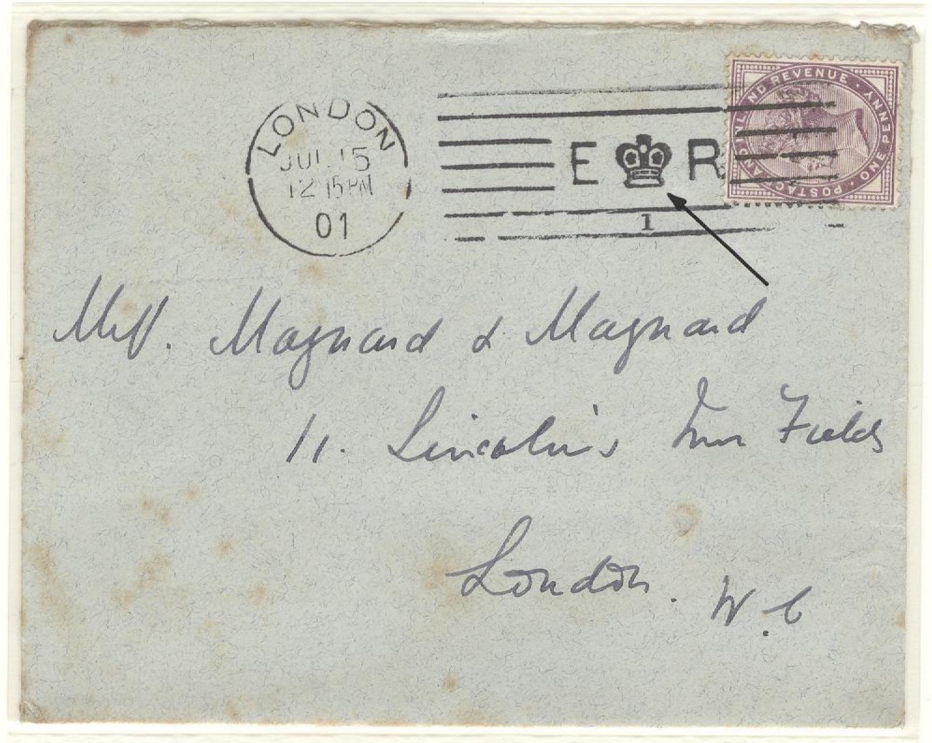 LONDON
JUL 15
12 15 PM
01
E R
1
POSTAGE AND INLAND REVENUE · ONE PENNY ·
Mess. Maynard & Maynard
11. Lincoln's Inn Fields
London. W.C